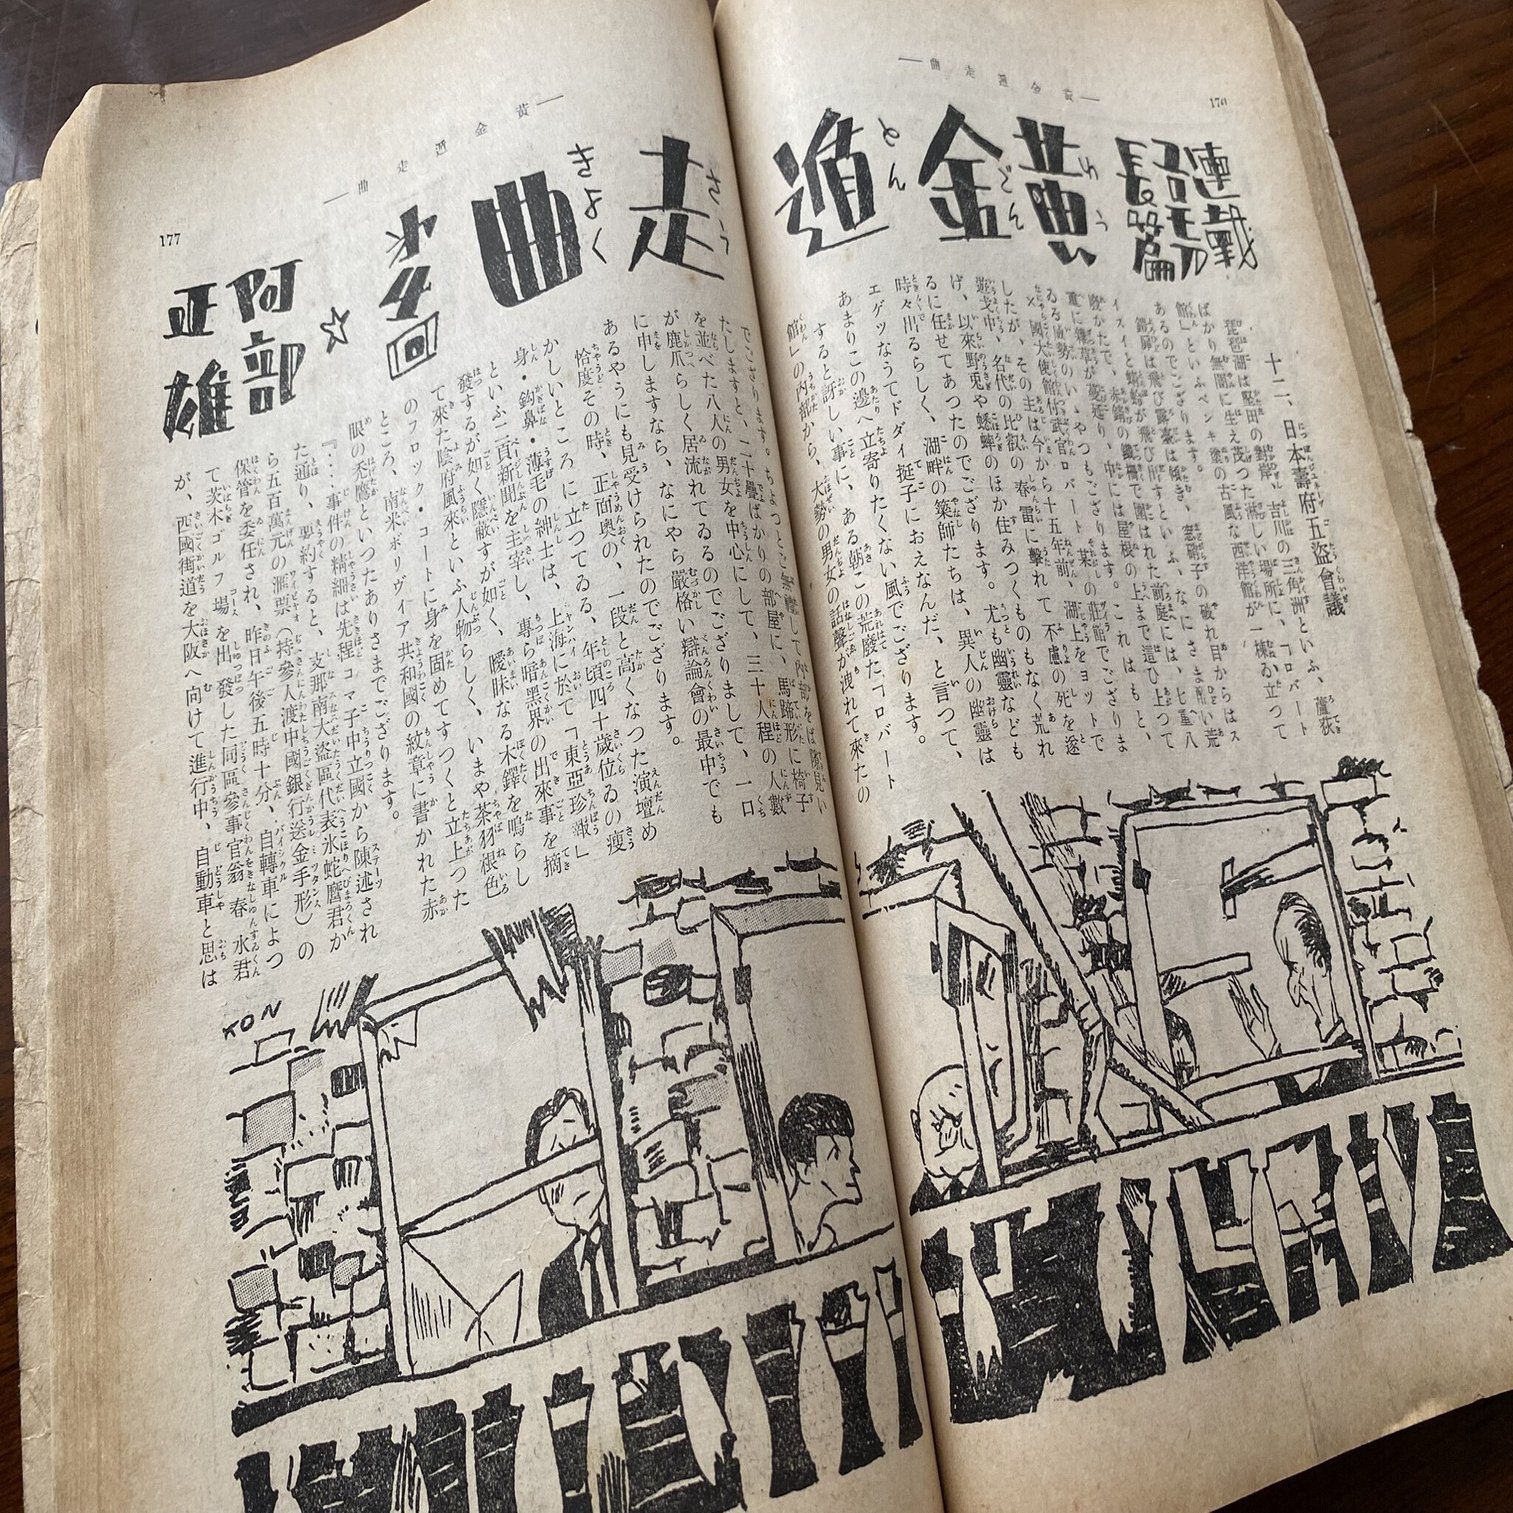 176
―黄金遁走曲―
連載
長篇
黄金遁走曲
第4回
☆
阿部正雄
十二、日本壽府五盗會議
琵琶湖は堅田の對岸、吉川の三角洲といふ、蘆荻
ばかり無闇に生え茂つた淋しい場所に、「ロバート
館」といふペンキ塗の古風な西洋館が一棟立つて
あるのでござります。
鎧扉は飛び露臺は傾き、窓硝子の破れ目からはス
イスイと蜻蛉が飛び出すといふ、なにさま酷い荒
廢かたで、赤錆の鐵柵で圍はれた前庭には、七重八
重に雜草が蔓延り、中には屋根の上まで這ひ上つて
ゐる放勢のいゝやつもござります。これはもと、
×國大使館付武官ロバート某の莊館でござりま
したが、その主は今から十五年前、湖上をヨットで
遊弋中、名代の比叡の春雷に擊れて不慮の死を遂
げ、以來野兎や蟋蟀のほか住みつくものもなく荒れ
るに任せてあつたのでござります。尤も幽靈なども
時々出るらしく、湖畔の簗師たちは、異人の幽靈は
エゲツなうてドダイ挺子におえなんだ、と言つて、
あまりこの邊へ立寄りたくない風でござります。
すると訝しい事に、ある朝この荒廢た「ロバート
館」の内部から、大勢の男女の話聲が洩れて來たの
―黄金遁走曲―
177
でござります。ちよつとご無禮して内部をば隙見い
たしますと、二十疊ばかりの部屋に、馬蹄形に椅子
を並べた八人の男女を中心にして、三十人程の人數
が鹿爪らしく居流れてゐるのでござりまして、一口
に申しますなら、なにやら嚴格い辯論會の最中でも
あるやうにも見受けられたのでござります。
恰度その時、正面奥の、一段と高くなつた演壇め
かしいところに立つてゐる、年頃四十歳位ゐの瘦
身・鈎鼻・薄毛の紳士は、上海に於て「東亞珍報」
といふ二頁新聞を主宰し、專ら暗黑界の出來事を摘
發するが如く隱蔽すが如く、曖昧なる木鐸を鳴らし
て來た陰府風來といふ人物らしく、いまや茶羽根色
のフロック・コートに身を固めてすつくと立上つた
ところ、南米ボリヴィア共和國の紋章に書かれた赤
眼の禿鷹といつたありさまでござります。
『‥‥事件の精細は先程コマ子中立國から陳述され
た通り、要約すると、支那南大盗區代表氷蛇麿君か
ら五百萬元の滙票（持參人渡中國銀行送金手形）の
保管を委任され、昨日午後五時十分、自轉車によつ
て茨木ゴルフ場を出發した同區參事官翁春水君
が、西國街道を大阪へ向けて進行中、自動車と思は
KON